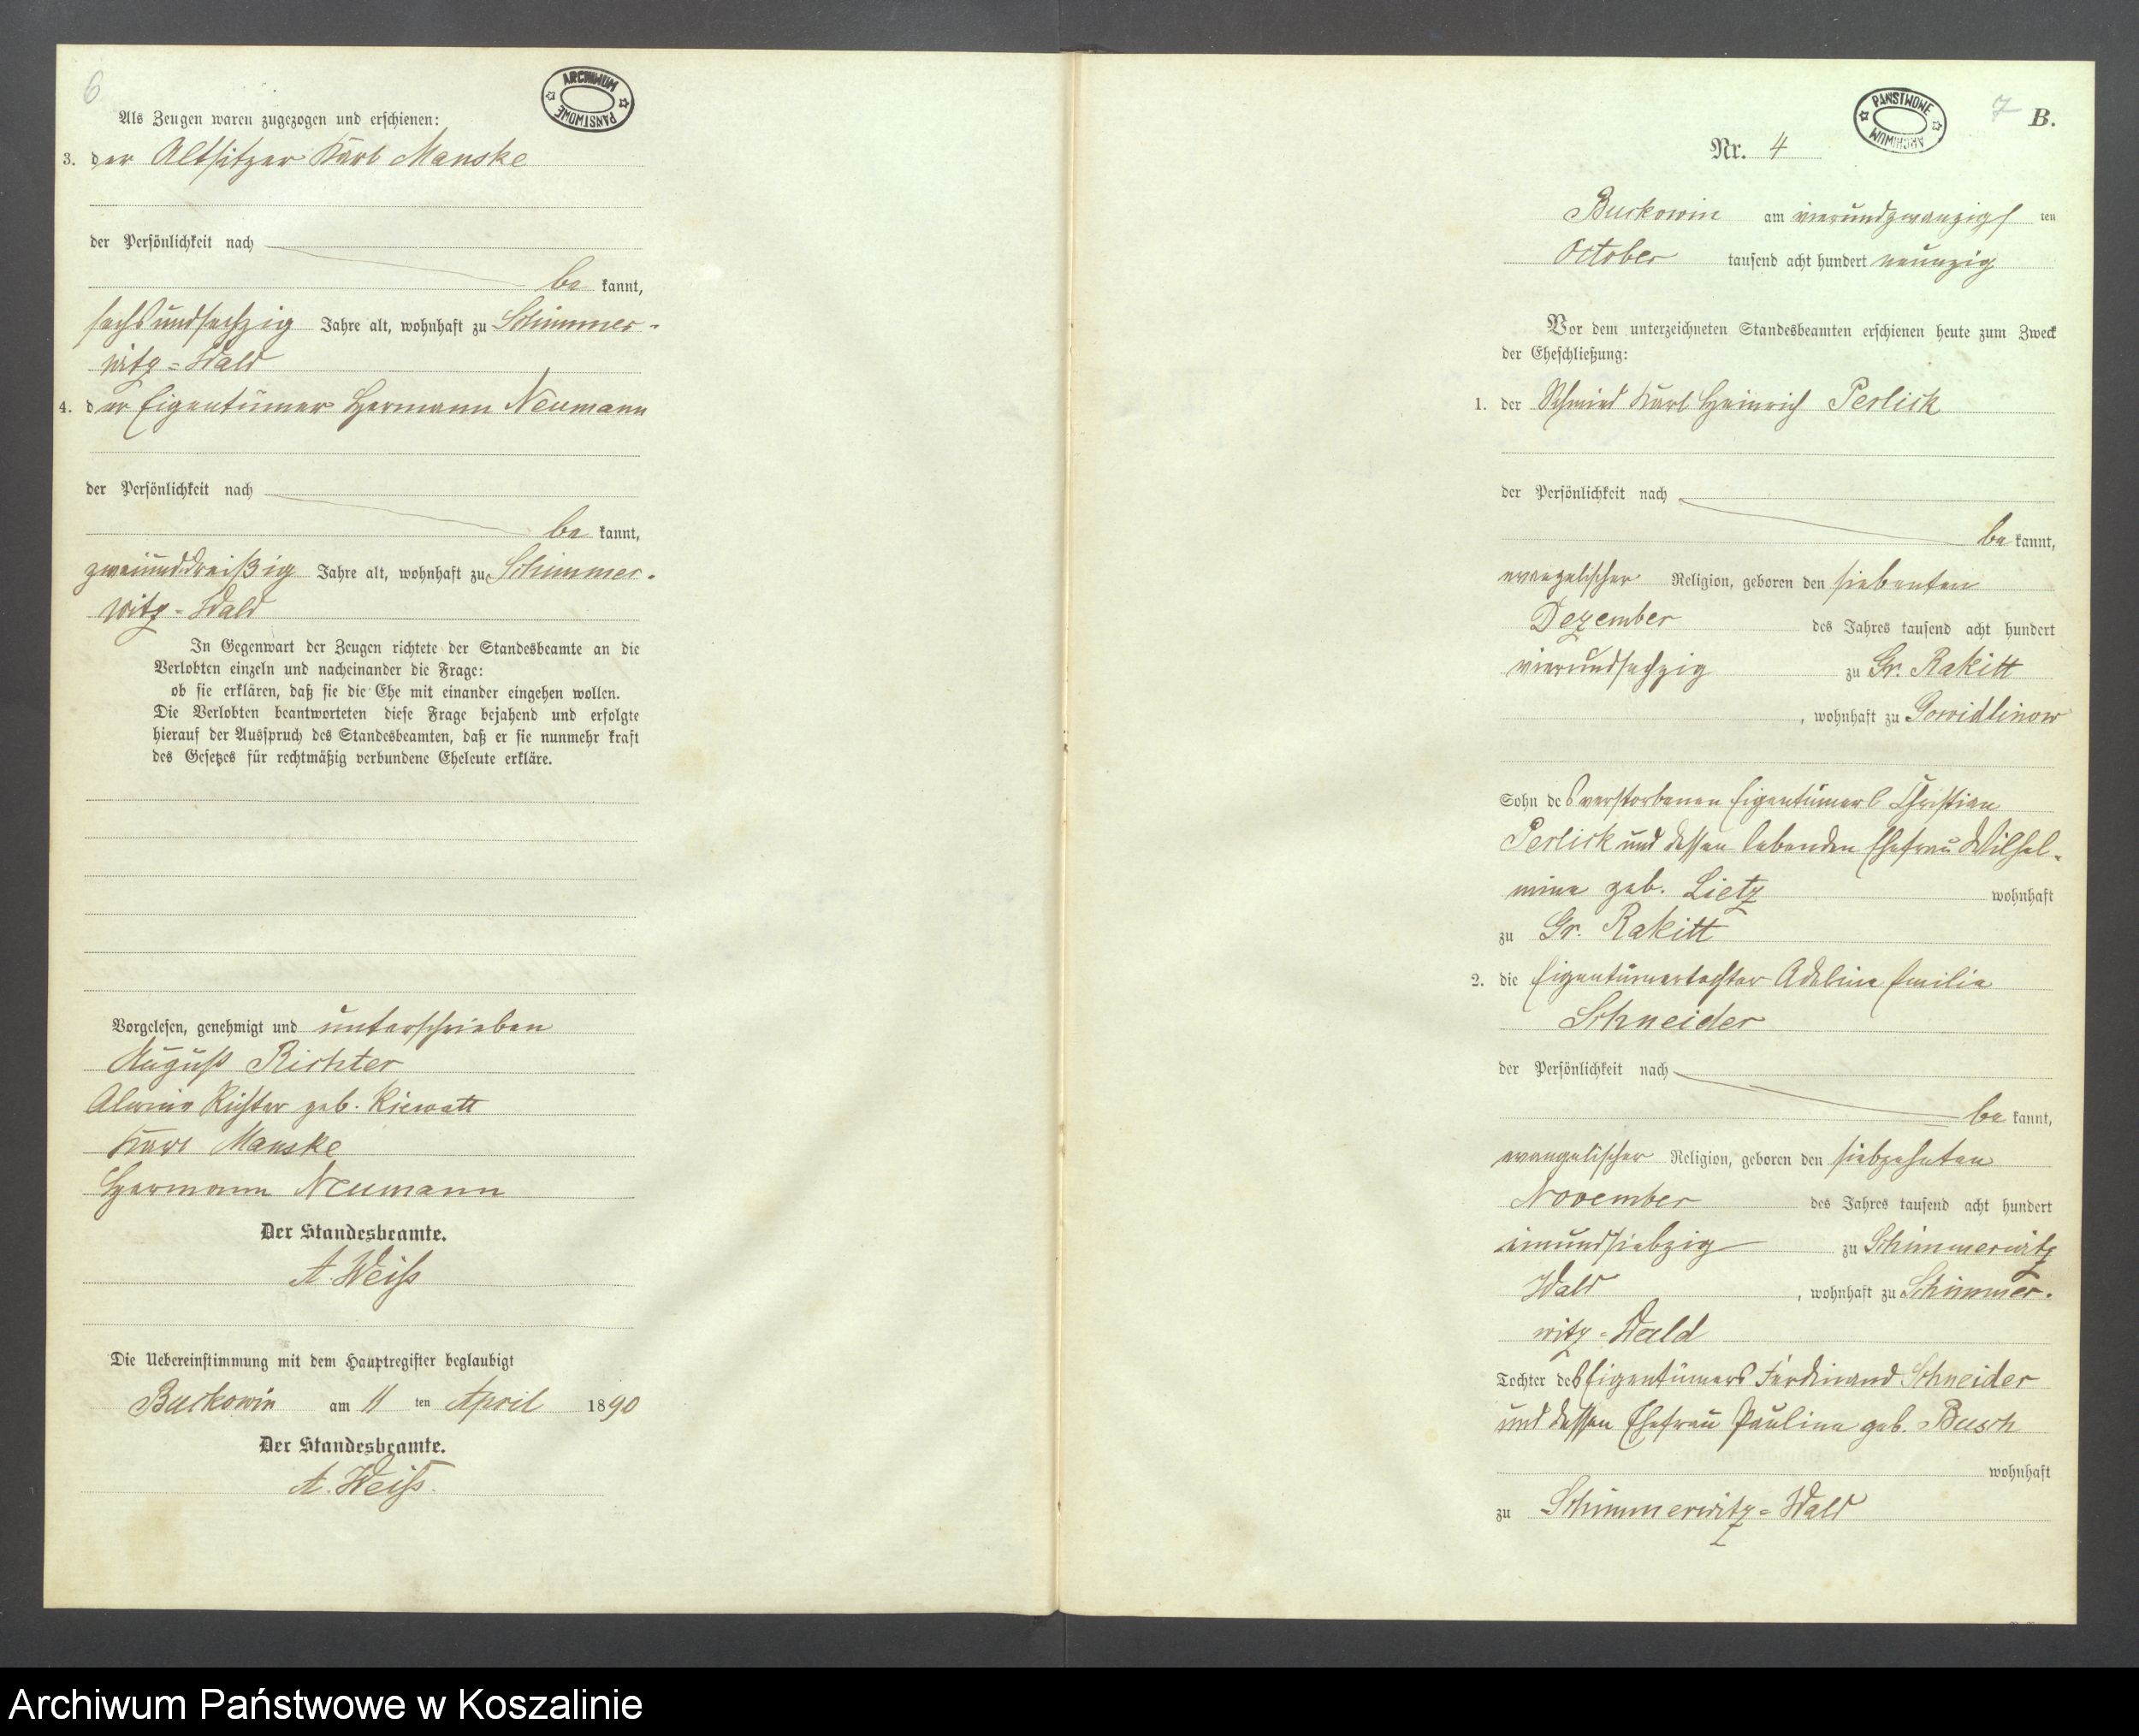 6
ARCHIWUM PANSTWOWE
Als Zeugen waren zugezogen und erschienen:
3. der Altsitzer Karl Manske
der Persönlichkeit nach
be kannt,
sechsundsechzig Jahre alt, wohnhaft zu Schimmer-
witz-Wald
4. der Eigentümer Hermann Neumann
der Persönlichkeit nach
be kannt,
zweiunddreißig Jahre alt, wohnhaft zu Schimmer-
witz-Wald
In Gegenwart der Zeugen richtete der Standesbeamte an die
Verlobten einzeln und nacheinander die Frage:
ob sie erklären, daß sie die Ehe mit einander eingehen wollen.
Die Verlobten beantworteten diese Frage bejahend und erfolgte
hierauf der Ausspruch des Standesbeamten, daß er sie nunmehr kraft
des Gesetzes für rechtmäßig verbundene Eheleute erkläre.
Vorgelesen, genehmigt und unterschrieben
August Richter
Alwine Richter geb. Kiewatt
Karl Manske
Hermann Neumann
Der Standesbeamte.
A. Weiß
Die Uebereinstimmung mit dem Hauptregister beglaubigt
Buckowin am 11 ten April 1890
Der Standesbeamte.
A. Weiß.
PANSTWOWE ARCHIWUM
7 B.
Nr. 4
Buckowin am vierundzwanzigs ten
October tausend acht hundert neunzig
Vor dem unterzeichneten Standesbeamten erschienen heute zum Zweck
der Eheschließung:
1. der Schmied Karl Heinrich Perlick
der Persönlichkeit nach
be kannt,
evangelischer Religion, geboren den siebenten
Dezember des Jahres tausend acht hundert
vierundsechzig zu Gr. Rakitt
, wohnhaft zu Gowidlinow
Sohn des verstorbenen Eigentümers Christian
Perlick und dessen lebenden Ehefrau Wilhel-
mine geb. Lietz wohnhaft
zu Gr. Rakitt
2. die Eigentümertochter Adeline Emilie
Schneider
der Persönlichkeit nach
be kannt,
evangelischer Religion, geboren den siebzehnten
November des Jahres tausend acht hundert
einundsiebzig zu Schimmerwitz
Wald , wohnhaft zu Schimmer-
witz-Wald
Tochter des Eigentümers Ferdinand Schneider
und dessen Ehefrau Pauline geb. Busch
wohnhaft
zu Schimmerwitz-Wald
Archiwum Państwowe w Koszalinie